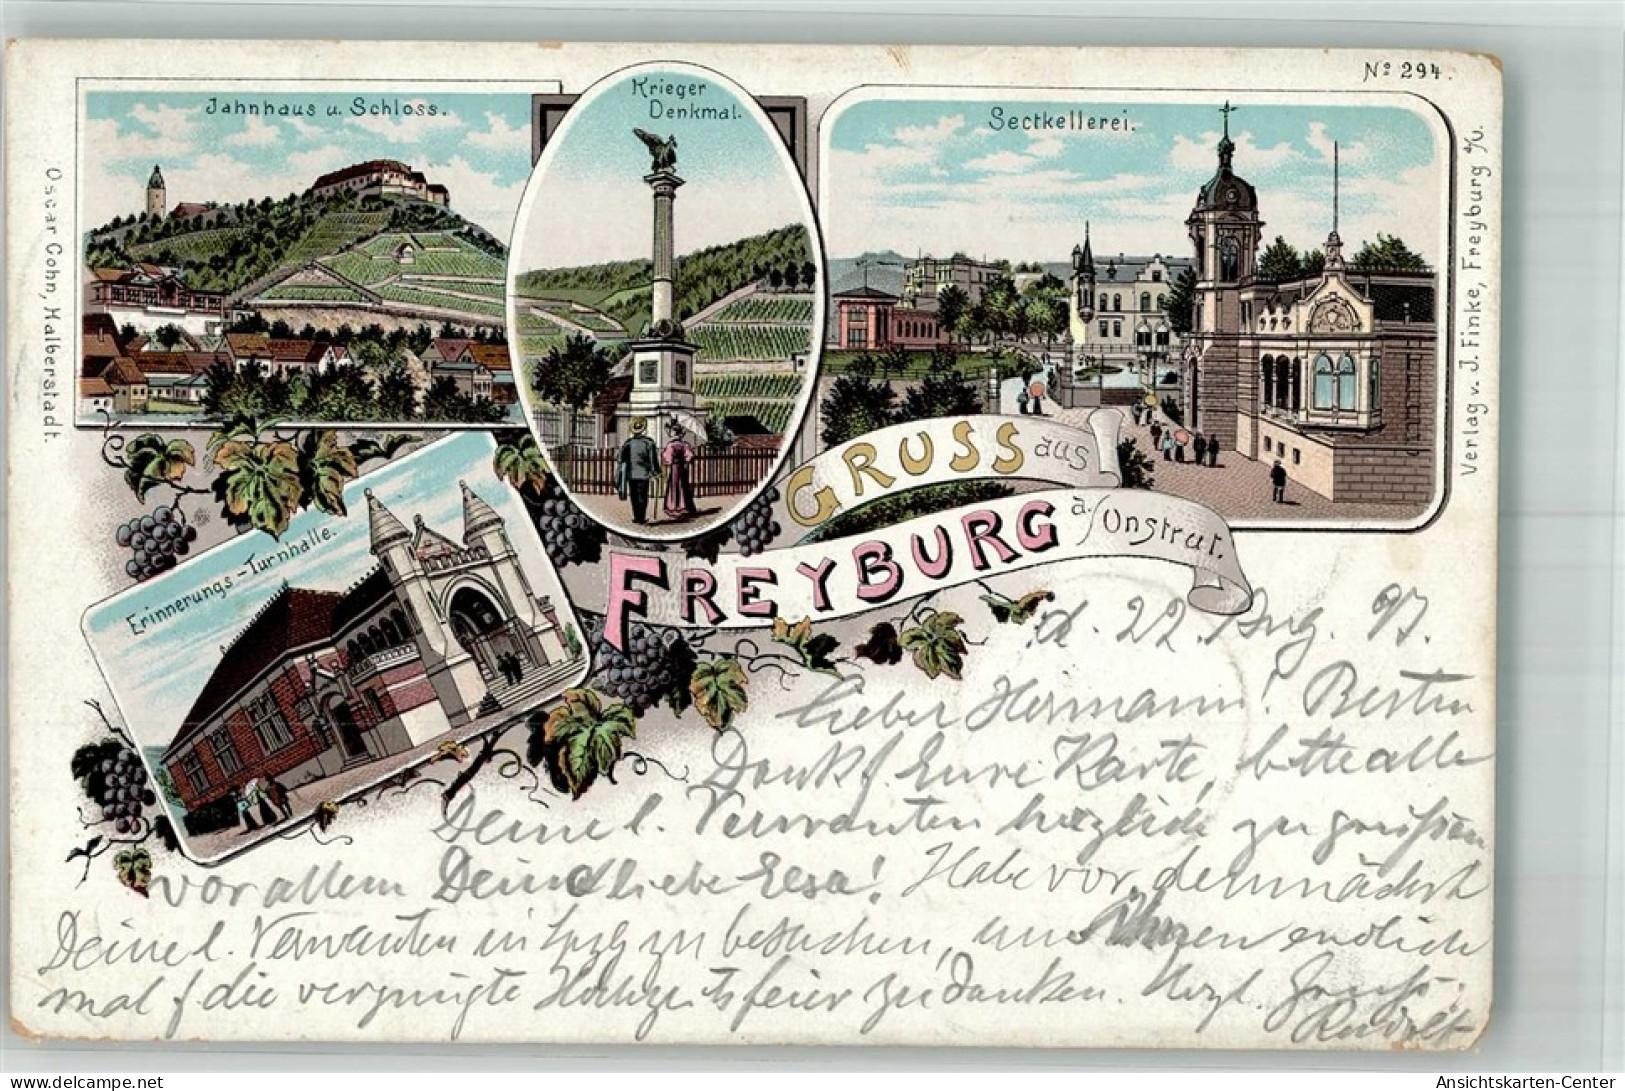 Nº 294.
Jahnhaus u. Schloss.
Krieger
Denkmal.
Sectkellerei.
Erinnerungs-Turnhalle.
GRUSS aus
FREYBURG a./Unstrut.
Oscar Cohn, Halberstadt.
Verlag v. J. Finke, Freyburg a/U.
d. 22. Aug. 97.
Lieber Hermann! Besten
Dank f. Eure Karte, bitte alle
Deine l. Verwandten herzlich zu grüßen
vor allem Deine liebe Elsa! Habe vor, demnächst
Deine l. Verwandten in Lpzg zu besuchen, um Ihnen endlich
mal f die vergnügte Hochzeitsfeier zu danken. Hrzl. Gruß.
Rudolf
Ansichtskarten-Center